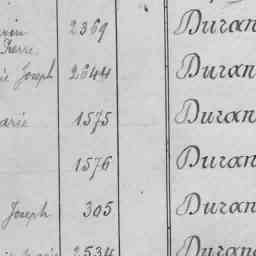 2369 Duran
Pierre
Joseph 2644 Duran
arie 1575 Duran
1576 Duran
Joseph 305 Duran
2534 Duran